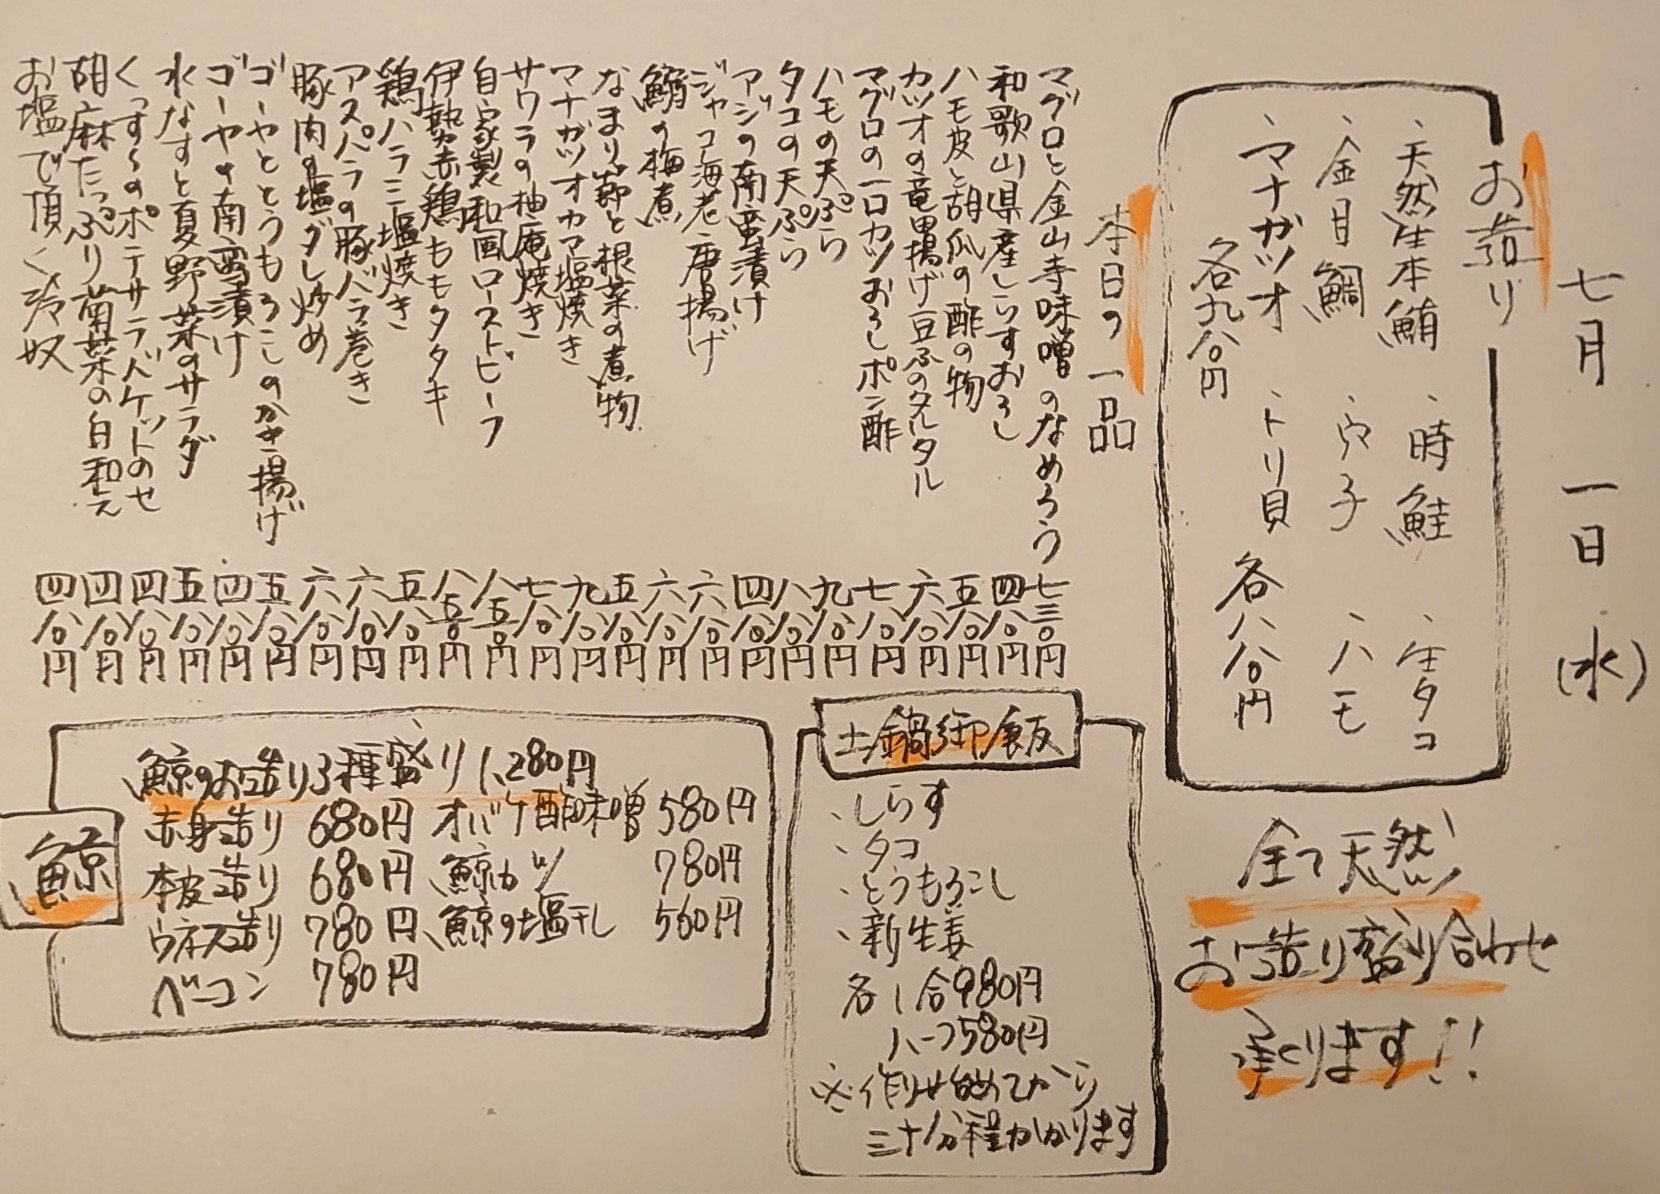 七月一日(水)
お造り
、天然生本鮪 、時鮭 、生タコ
、金目鯛 、穴子 、ハモ
、マナガツオ 、トリ貝
各九八〇円 各八八〇円
全て天然
お造り盛り合わせ
承ります!!
本日の一品
マグロと金山寺味噌のなめろう 七三〇円
和歌山県産しらすおろし 四八〇円
ハモ皮と胡瓜の酢の物 五八〇円
カツオの竜田揚げ豆ふのタルタル 六八〇円
マグロの一口カツおろしポン酢 七八〇円
ハモの天ぷら 九八〇円
タコの天ぷら 八八〇円
アジの南蛮漬け 四八〇円
ジャコ海老唐揚げ 六八〇円
鰯の梅煮 六八〇円
なまり節と根菜の煮物 五八〇円
マナガツオカマ塩焼き 九八〇円
サワラの柚庵焼き 七八〇円
自家製和風ローストビーフ 八五〇円
伊勢赤鶏ももタタキ 八五〇円
鶏ハラミ塩焼き 五八〇円
アスパラの豚バラ巻き 六八〇円
豚肉の塩ダレ炒め 六八〇円
ゴーヤととうもろこしのかき揚げ 五八〇円
ゴーヤの南蛮漬け 四八〇円
水なすと夏野菜のサラダ 五八〇円
ポテサラバケットのせ 四八〇円
胡麻たっぷり菊菜の白和え 四八〇円
お塩で頂く冷奴 四八〇円
土鍋御飯
、しらす
、タコ
、とうもろこし
、新生姜
各1合980円
ハーフ580円
※作り始めてから
三十分程かかります
鯨
鯨のお造り3種盛り 1,280円
赤身造り 680円 オバケ酢味噌 580円
本皮造り 680円 鯨カツ 780円
ウネス造り 780円 鯨の塩干し 560円
ベーコン 780円